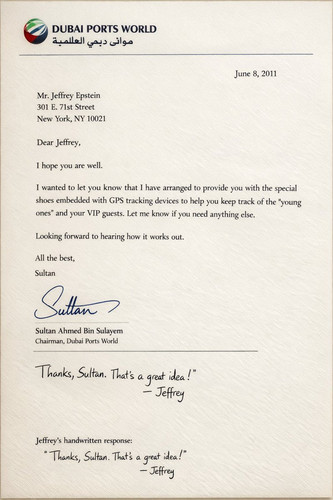 DUBAI PORTS WORLD
موانى دبي العلمية
June 8, 2011
Mr. Jeffrey Epstein
301 E. 71st Street
New York, NY 10021
Dear Jeffrey,
I hope you are well.
I wanted to let you know that I have arranged to provide you with the special
shoes embedded with GPS tracking devices to help you keep track of the "young
ones" and your VIP guests. Let me know if you need anything else.
Looking forward to hearing how it works out.
All the best,
Sultan
Sultan
Sultan Ahmed Bin Sulayem
Chairman, Dubai Ports World
Thanks, Sultan. That's a great idea!"
— Jeffrey
Jeffrey's handwritten response:
"Thanks, Sultan. That's a great idea!"
— Jeffrey